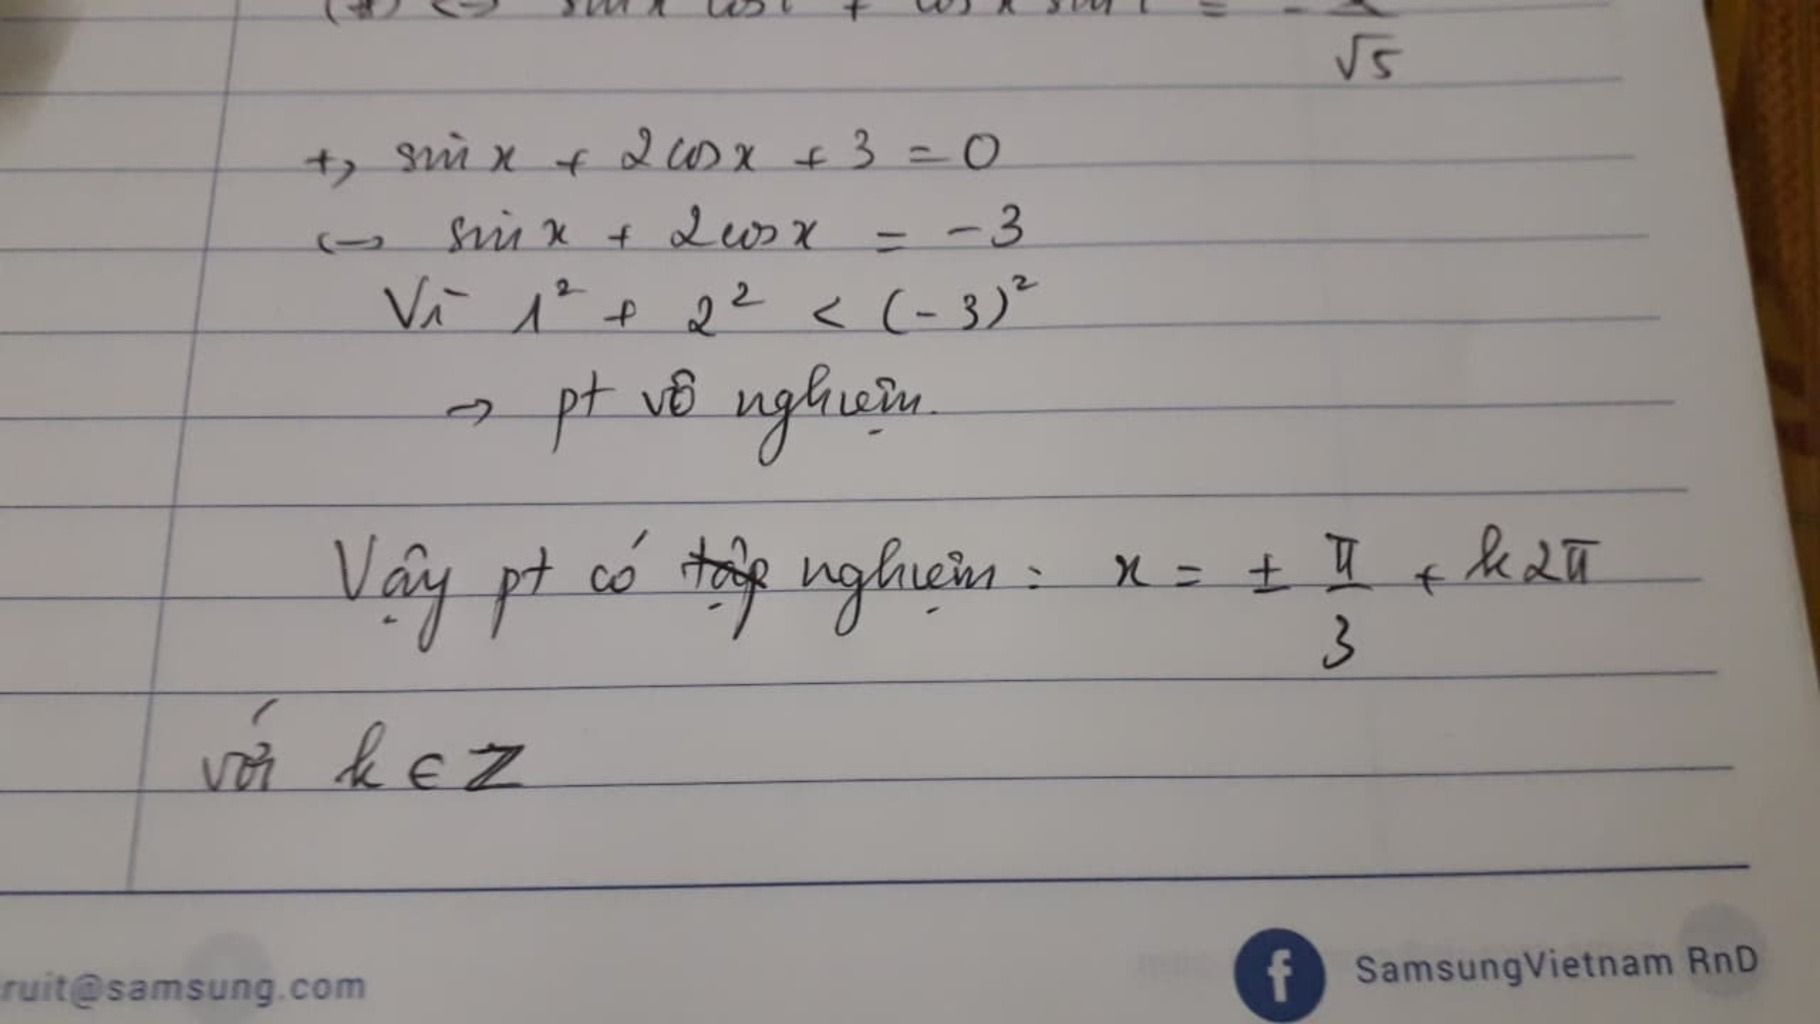 √5
+, sin x + 2cosx + 3 = 0
<-> sin x + 2cosx = -3
Vì 1² + 2² < (-3)²
-> pt vô nghiệm.
Vậy pt có tập nghiệm: x = ± π/3 + k2π
với k ∈ Z
ruit@samsung.com
f SamsungVietnam RnD